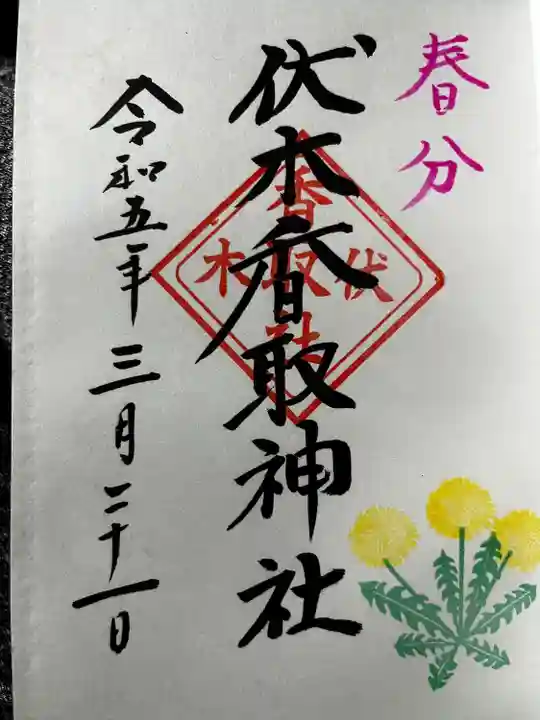 春分
伏木香取神社
伏木
香取社
令和五年三月二十一日